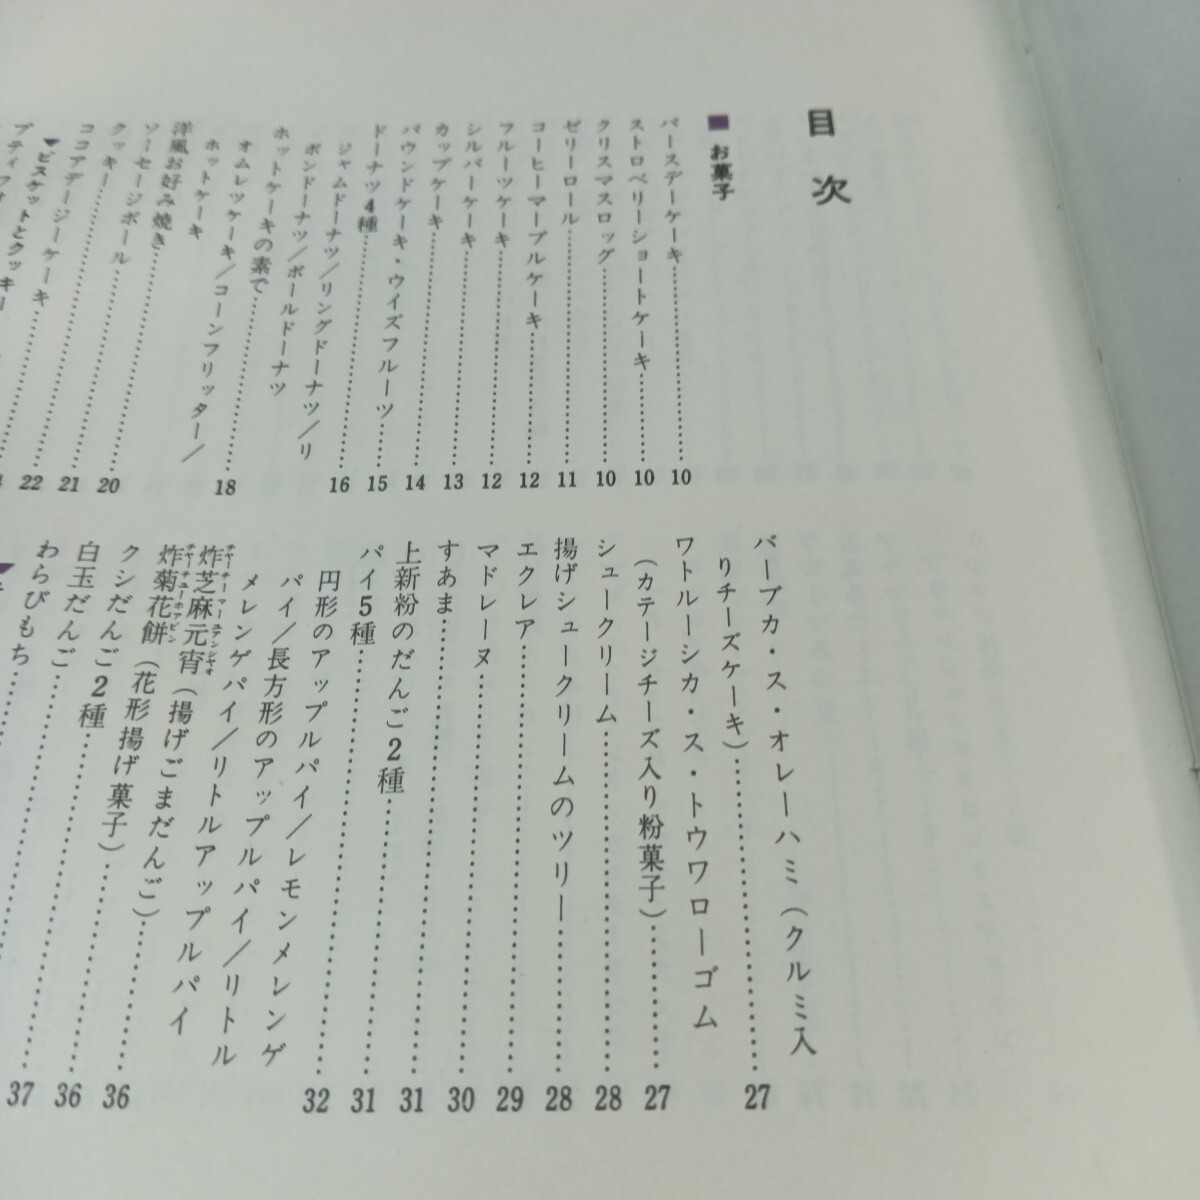 目次
■お菓子
バースデーケーキ……10
ストロベリーショートケーキ……10
クリスマスロッグ……10
ゼリーロール……11
コーヒーマーブルケーキ……12
フルーツケーキ……12
シルバーケーキ……13
カップケーキ……14
パウンドケーキ・ウイズフルーツ……15
ドーナツ4種……16
ジャムドーナツ／リングドーナツ／リ
ボンドーナツ／ボールドーナツ
ホットケーキの素で……18
オムレツケーキ／コーンフリッター／
ホットケーキ
洋風お好み焼き
ソーセージボール……20
クッキー……21
ココアデージーケーキ……22
▼ビスケットとクッキー
プティフォ
バーブカ・ス・オレーハミ（クルミ入
りチーズケーキ）……27
ワトルーシカ・ス・トウワローゴム
（カテージチーズ入り粉菓子）……27
シュークリーム……28
揚げシュークリームのツリー……28
エクレア……29
マドレーヌ……30
すあま……31
上新粉のだんご2種……31
パイ5種……32
円形のアップルパイ／レモンメレンゲ
パイ／長方形のアップルパイ／リトル
メレンゲパイ／リトルアップルパイ
炸芝麻元宵（揚げごまだんご）……36
炸菊花餅（花形揚げ菓子）……36
クシだんご2種……37
白玉だんご……
わらびもち……